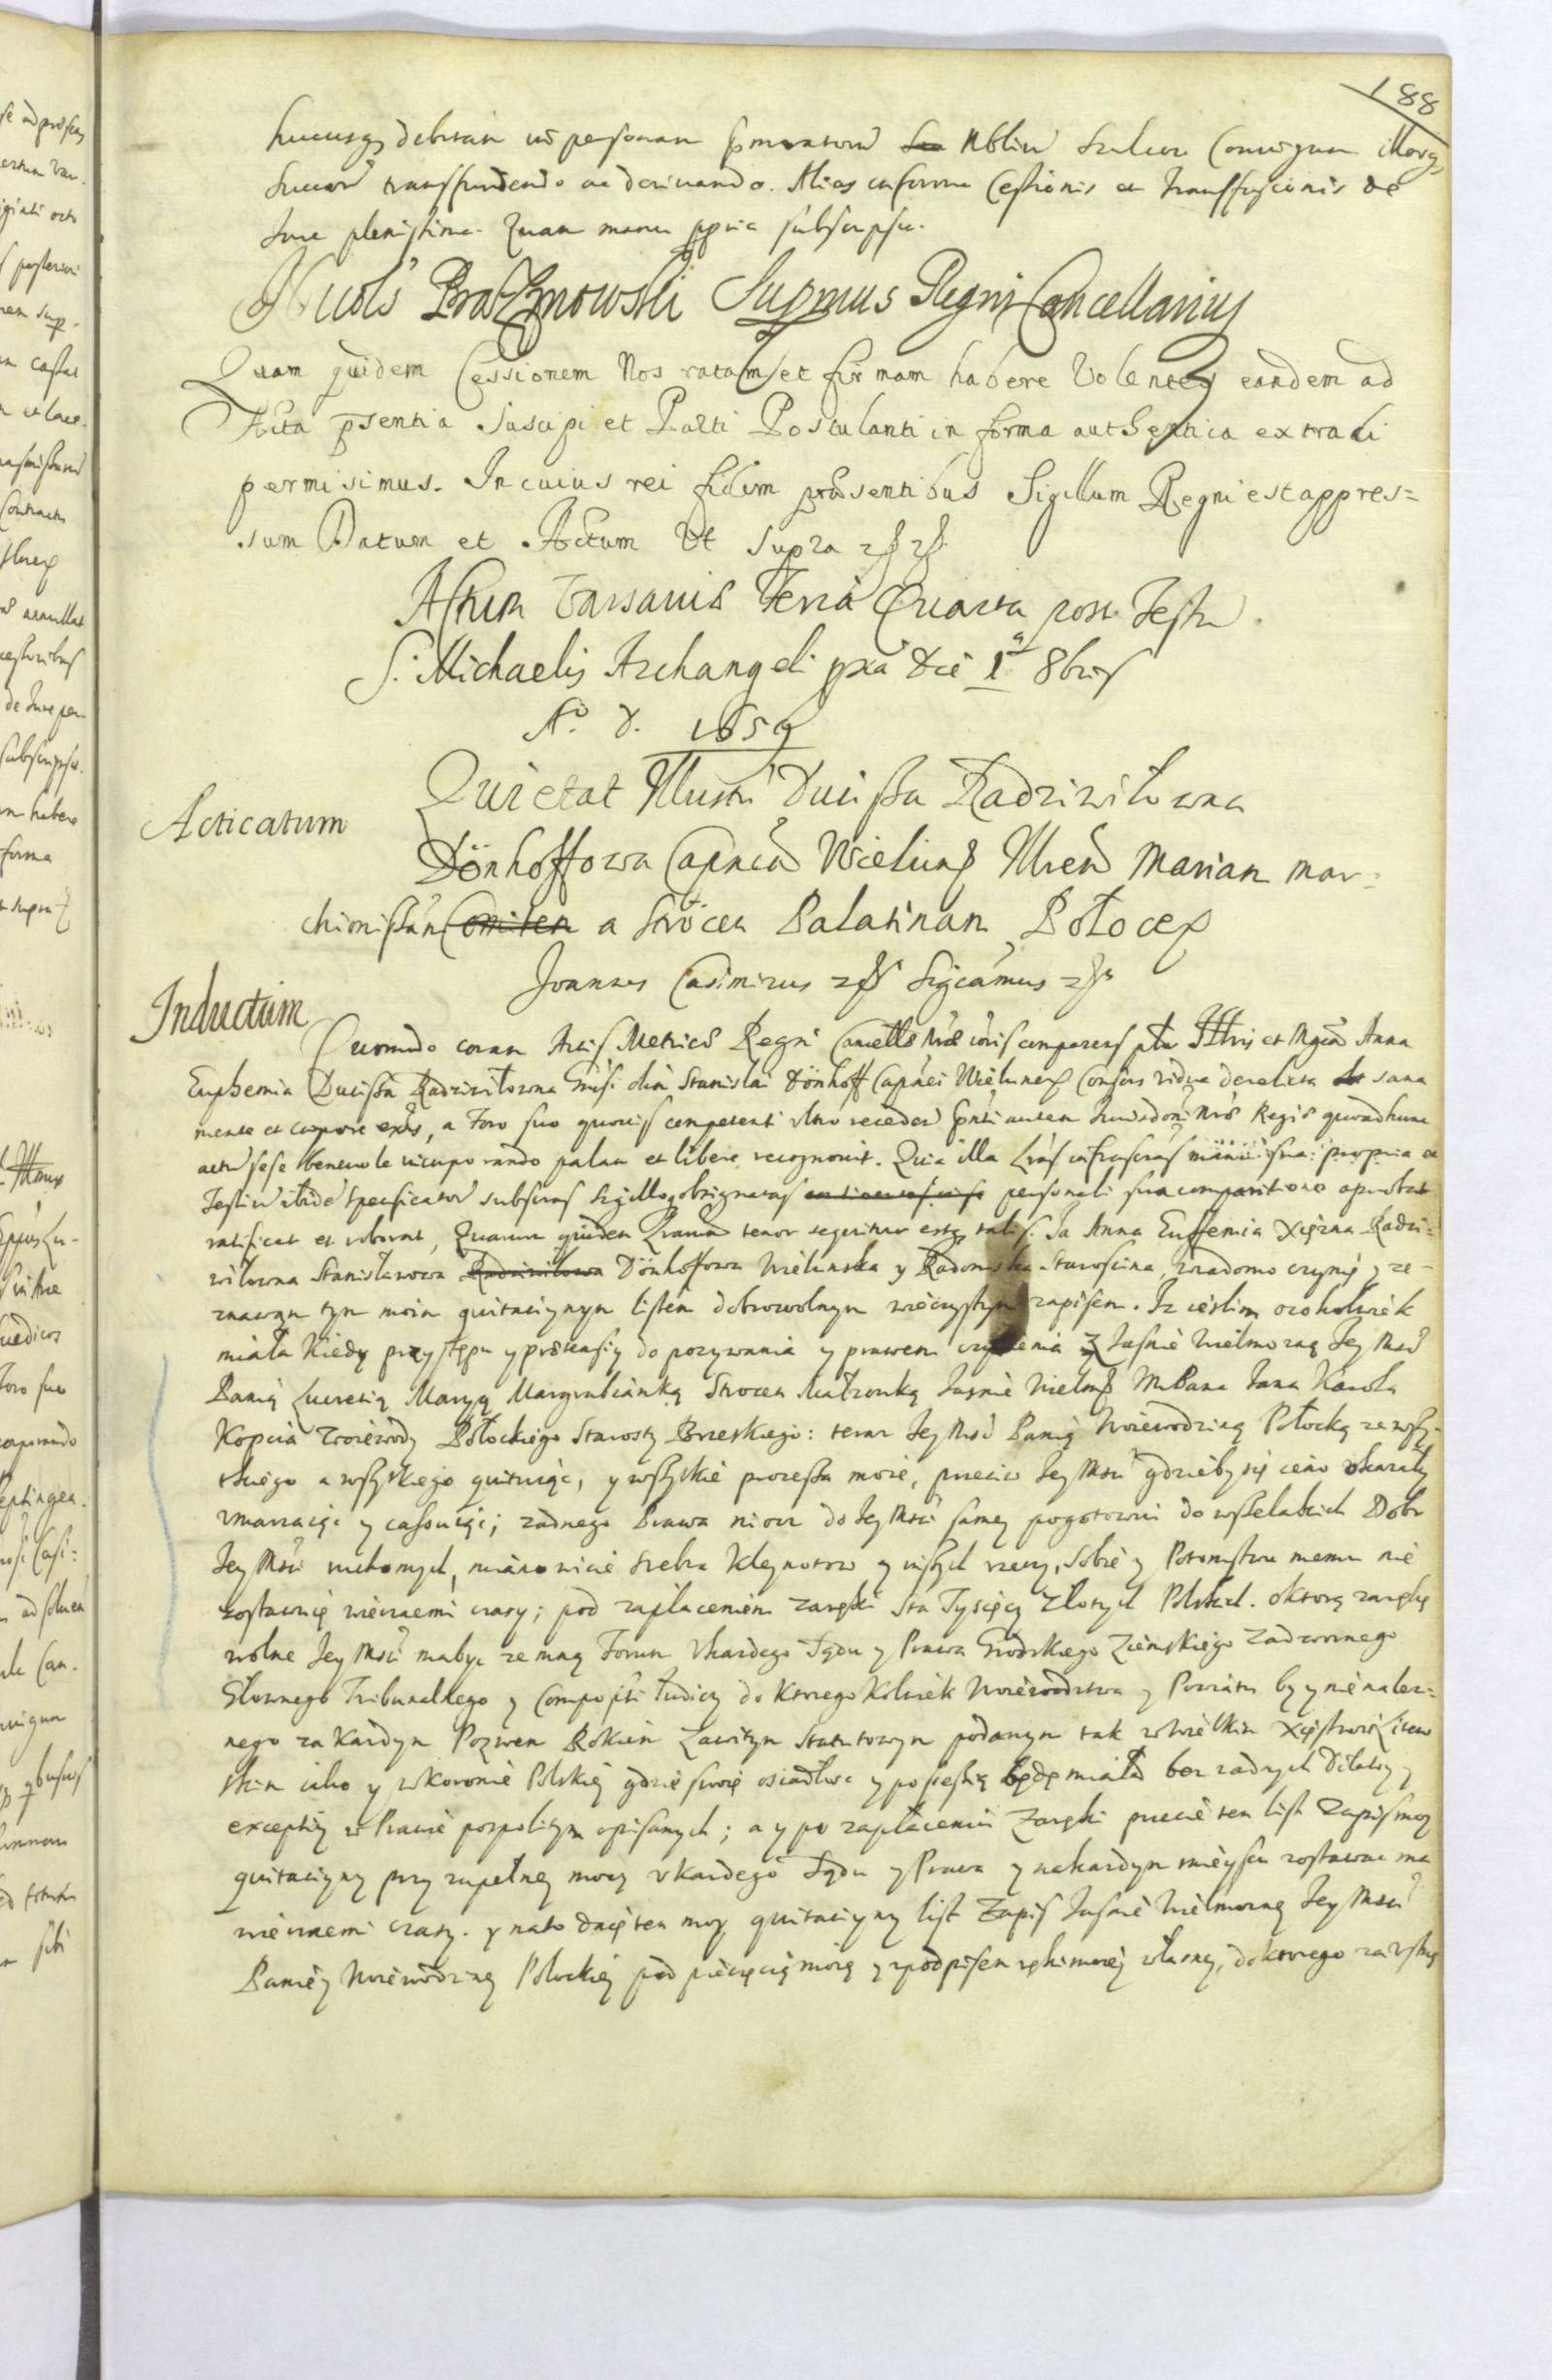 188
hucusq debitam in personam pmemoratorum Nblium Szulcow Coniugum illorq
Succor transffundendo ac deriuando. Alias in forma Cessionis et transffusionis de
Jure plenissima. Quam manu ppria subscripsi.
Nicols Prażmowski Supmus Regni Cancellarius
Quam quidem Cessionem Nos ratam et firmam habere Volentes eandem ad
Acta psentia Suscipi et Parti Postulanti in forma authentica extradi
permisimus. In cuius rei fidem præsentibus Sigillum Regni est appres=
sum Datum et Actum Ut supra
Actum Varsauiæ Feria Quarta post Festu
S. Michaelis Archangeli pxa die 1a 8bris
Ao d. 1659
Acticatum
Quietat Illustr Ducissa Radziwiłowna
Dönhoffowa Capnea Wielunẽ Illrem Mariam mar=
chionissam Comiten a Strocen Palatinam Połocen
Joannes Casimirus Sigcamus
Inductum
Quomodo coram Actis Metrices Regni Cancellæ Nræ comparens Illris et Mgca Anna
Euphemia Ducissa Radziwiłowna Gnsi olim Stanislai Dönhoff Capnei Wielunen Consors vidua derelicta sana
mente et corpore exns, a Foro suo quouis competenti vltro recedens autem Regiæ quoad hunc
actu sese beneuole incuporando palam et libere recognouit. Quia illa Lras infrascras manu sua propria et
Testiu ibide specificatorũ subscras sigilloq obsignatas personali sua comparitione aprobat
ratificat et roborat, Quarum quidem Lrarum tenor sequitur estq talis. Ja Anna Euffemia Xiężna Radzi=
wiłowna Stanisławowa Radziwiłowa Dönhoffowa Wielunska y Radomska Starościna, wiadomo czynię y ze-
znawam tym moim quitaciynym listem dobrowolnym wieczystym zapisem. Iż ieslim ozokolwiek
miała kiedy przystępu y prætensiy do pozywania y prawem czynienia Z Jasnie Wielmozną Jey Mscią
Panią Lucretią Maryą Margrabianką Strocen Małzonką Jasnie Wielmo MPana Jana Karola
Kopcia Woiewody Połockiego Starosty Brzeskiego: teraz Jey Mscć Panią Woiewodziną Połocką ze wszy-
tkiego a wszytkiego quituiąc, y wszytkie processa moie, przeciw Jey Msci gdzieby się ieno okazały
vmarzaiąc y cassuiąc; żadnego Prawa niocz do Jey Msci samey pogotowiu do wszelakich Dobr
Jey Msci ruchomych, mianowicie srebra kleynotow y inszych rzeczy, sobie y Potomstwu memu nie
zostawuię wiecznemi czasy; pod zapłaceniem zaręki Sta Tysięcy Złotych Polskich. o ktorą zarękę
wolne Jey Msci ma byc ze mną Forum v kazdego Sądu y Prawa Grodskiego Ziemskiego Zadwornego
Głownego Tribunalnego y Compositi Iudicy do ktoregokolwiek Woiewodztwa y Powiatu by y nienalez=
nego za kazdym Pozwem Rokiem Zawitym Statutowym podanym tak w Wielkim Xięstwie Litew
skim iako y w Koronie Polskiey gdzie swoię osiadłosc y possessią będę miała bez zadnych Dilatiy y
exceptiy w Prawie pospolitym opisanych; a y po zapłaceniu zaręki przecie ten list Zapis moy
quitacyyny przy zupełney mocy v kazdego Sądu y Prawa y na kazdym mieyscu zostawac ma
wiecznemi czasy. y na to daię ten moy quitacyyny list Zapis Jasnie Wielmozney Jey Msci
Paniey Woiewodziney Połockiey pod pieczęcią moią y z podpisem ręki moiey własney, do ktorego za vstną